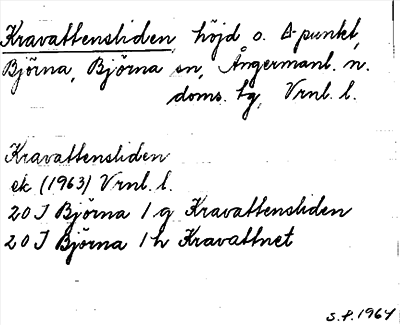 Kravattensliden, höjd o. Δ punkt,
Björna, Björna sn, Ångermanl. n.
doms. tg, Vrnl. l.
Kravattensliden
ek (1963) Vrnl. l.
20 J Björna 1 g Kravattensliden
20 J Björna 1 h Kravattnet
S.P. 1964